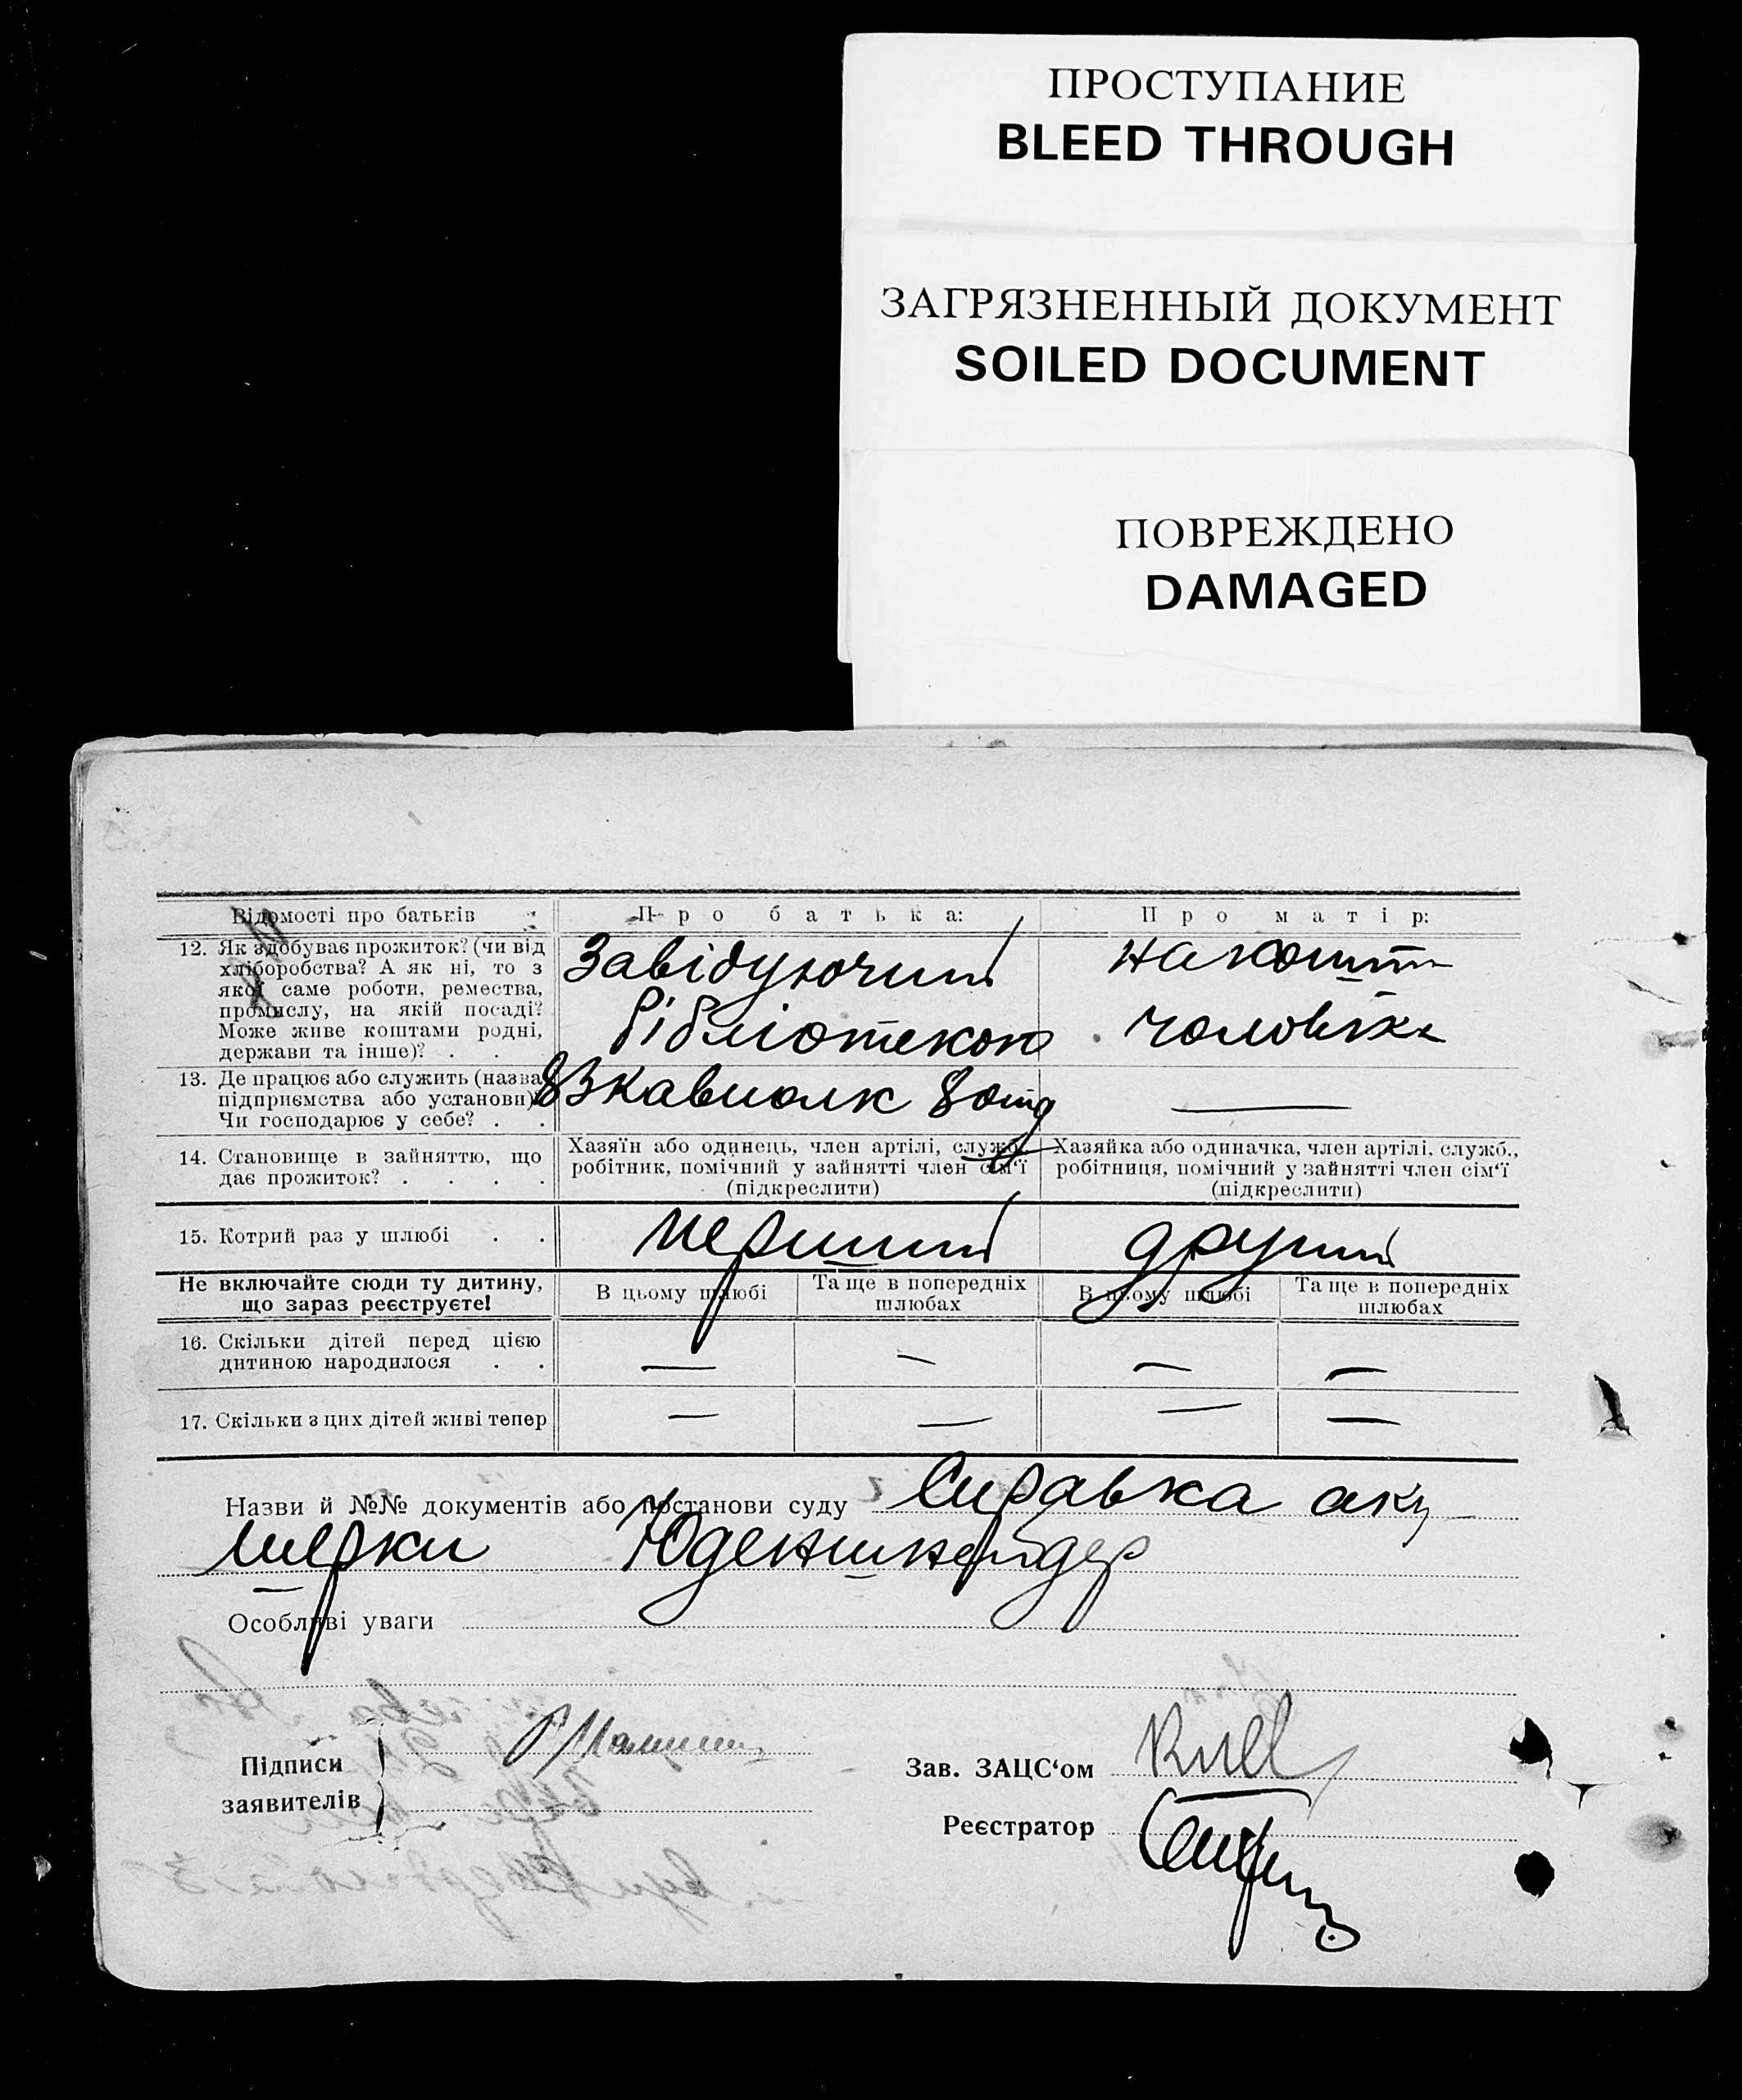 ПРОСТУПАНИЕ
BLEED THROUGH
ЗАГРЯЗНЕННЫЙ ДОКУМЕНТ
SOILED DOCUMENT
ПОВРЕЖДЕНО
DAMAGED
Відомості про батьків
Про батька:
Про матір:
12. Як здобуває прожиток? (чи від
хліборобства? А як ні, то з
якої саме роботи, ремества,
промислу, на якій посаді?
Може живе коштами родні,
держави та інше)? . .
Завідуючий
бібліотекою
на кошти
чоловіка
13. Де працює або служить (назва
підприємства або установи)?
Чи господарює у себе? . .
Кавполк
14. Становище в зайняттю, що
дає прожиток? . . . .
Хазяїн або одинець, член артілі, служб.,
робітник, помічний у зайнятті член сім‘ї
(підкреслити)
Хазяйка або одиначка, член артілі, служб.,
робітниця, помічний у зайнятті член сім‘ї
(підкреслити)
15. Котрий раз у шлюбі . .
перший
другий
Не включайте сюди ту дитину,
що зараз реєструєте!
В цьому шлюбі
Та ще в попередніх
шлюбах
В цьому шлюбі
Та ще в попередніх
шлюбах
16. Скільки дітей перед цією
дитиною народилося . .
— — — —
17. Скільки з цих дітей живі тепер
— — — —
Назви й №№ документів або постанови суду Справка аку
шерки Юденшнейдер
Особливі уваги
Підписи
заявителів
Зав. ЗАЦС‘ом
Реєстратор